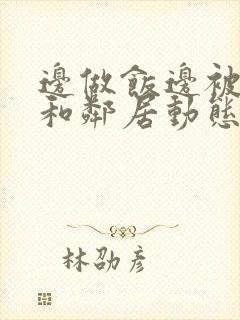 邊做飯邊被
和鄰居動態
林劭彥